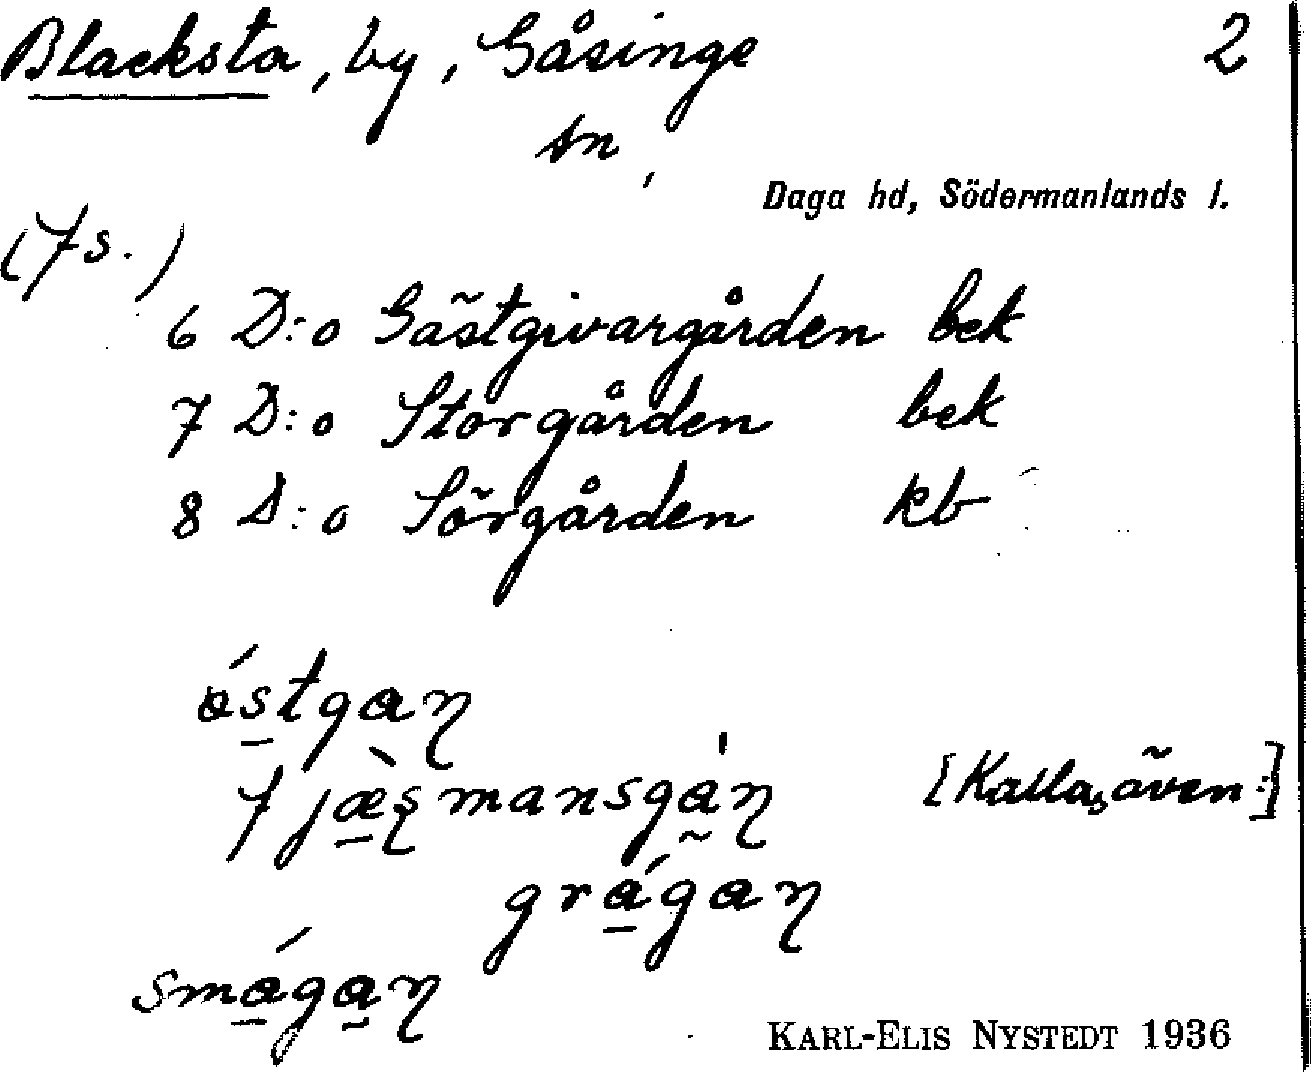 Blacksta, by, Gåsinge 2
sn,
Daga hd, Södermanlands l.
(Fs.)
6 D:o Gästgivargården bek
7 D:o Storgården bek
8 D:o Sörgården kb
[Kallas även:]
KARL-ELIS NYSTEDT 1936